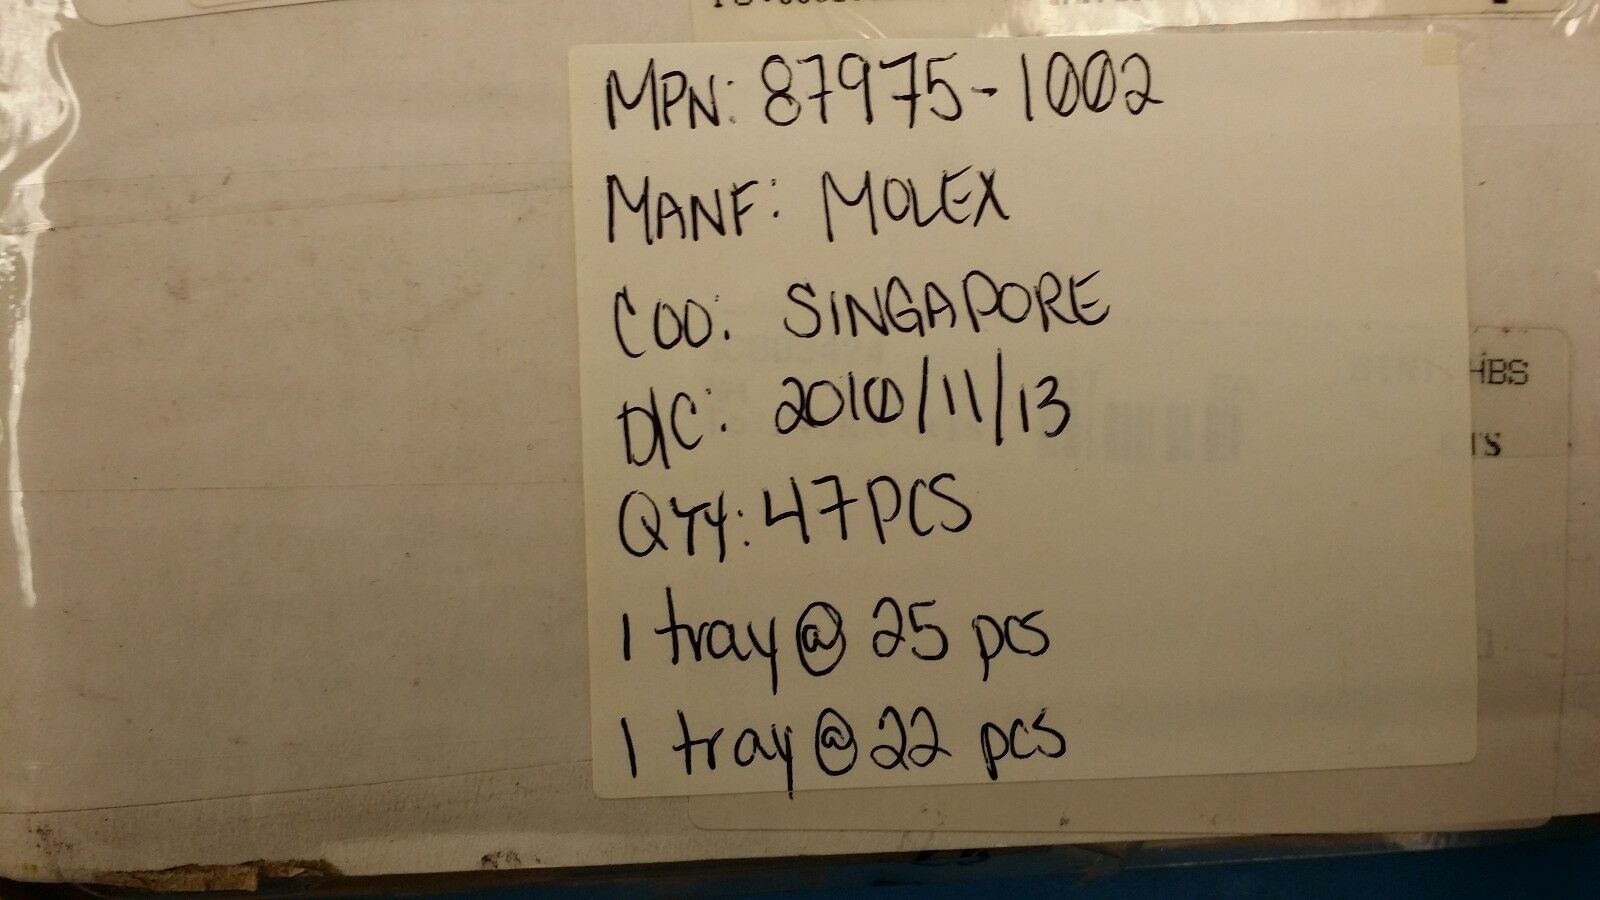 MPN: 87975-1002
MANF: MOLEX
COO: SINGAPORE
D/C: 2010/11/13
QTY: 47 PCS
1 tray @ 25 pcs
1 tray @ 22 pcs
HBS